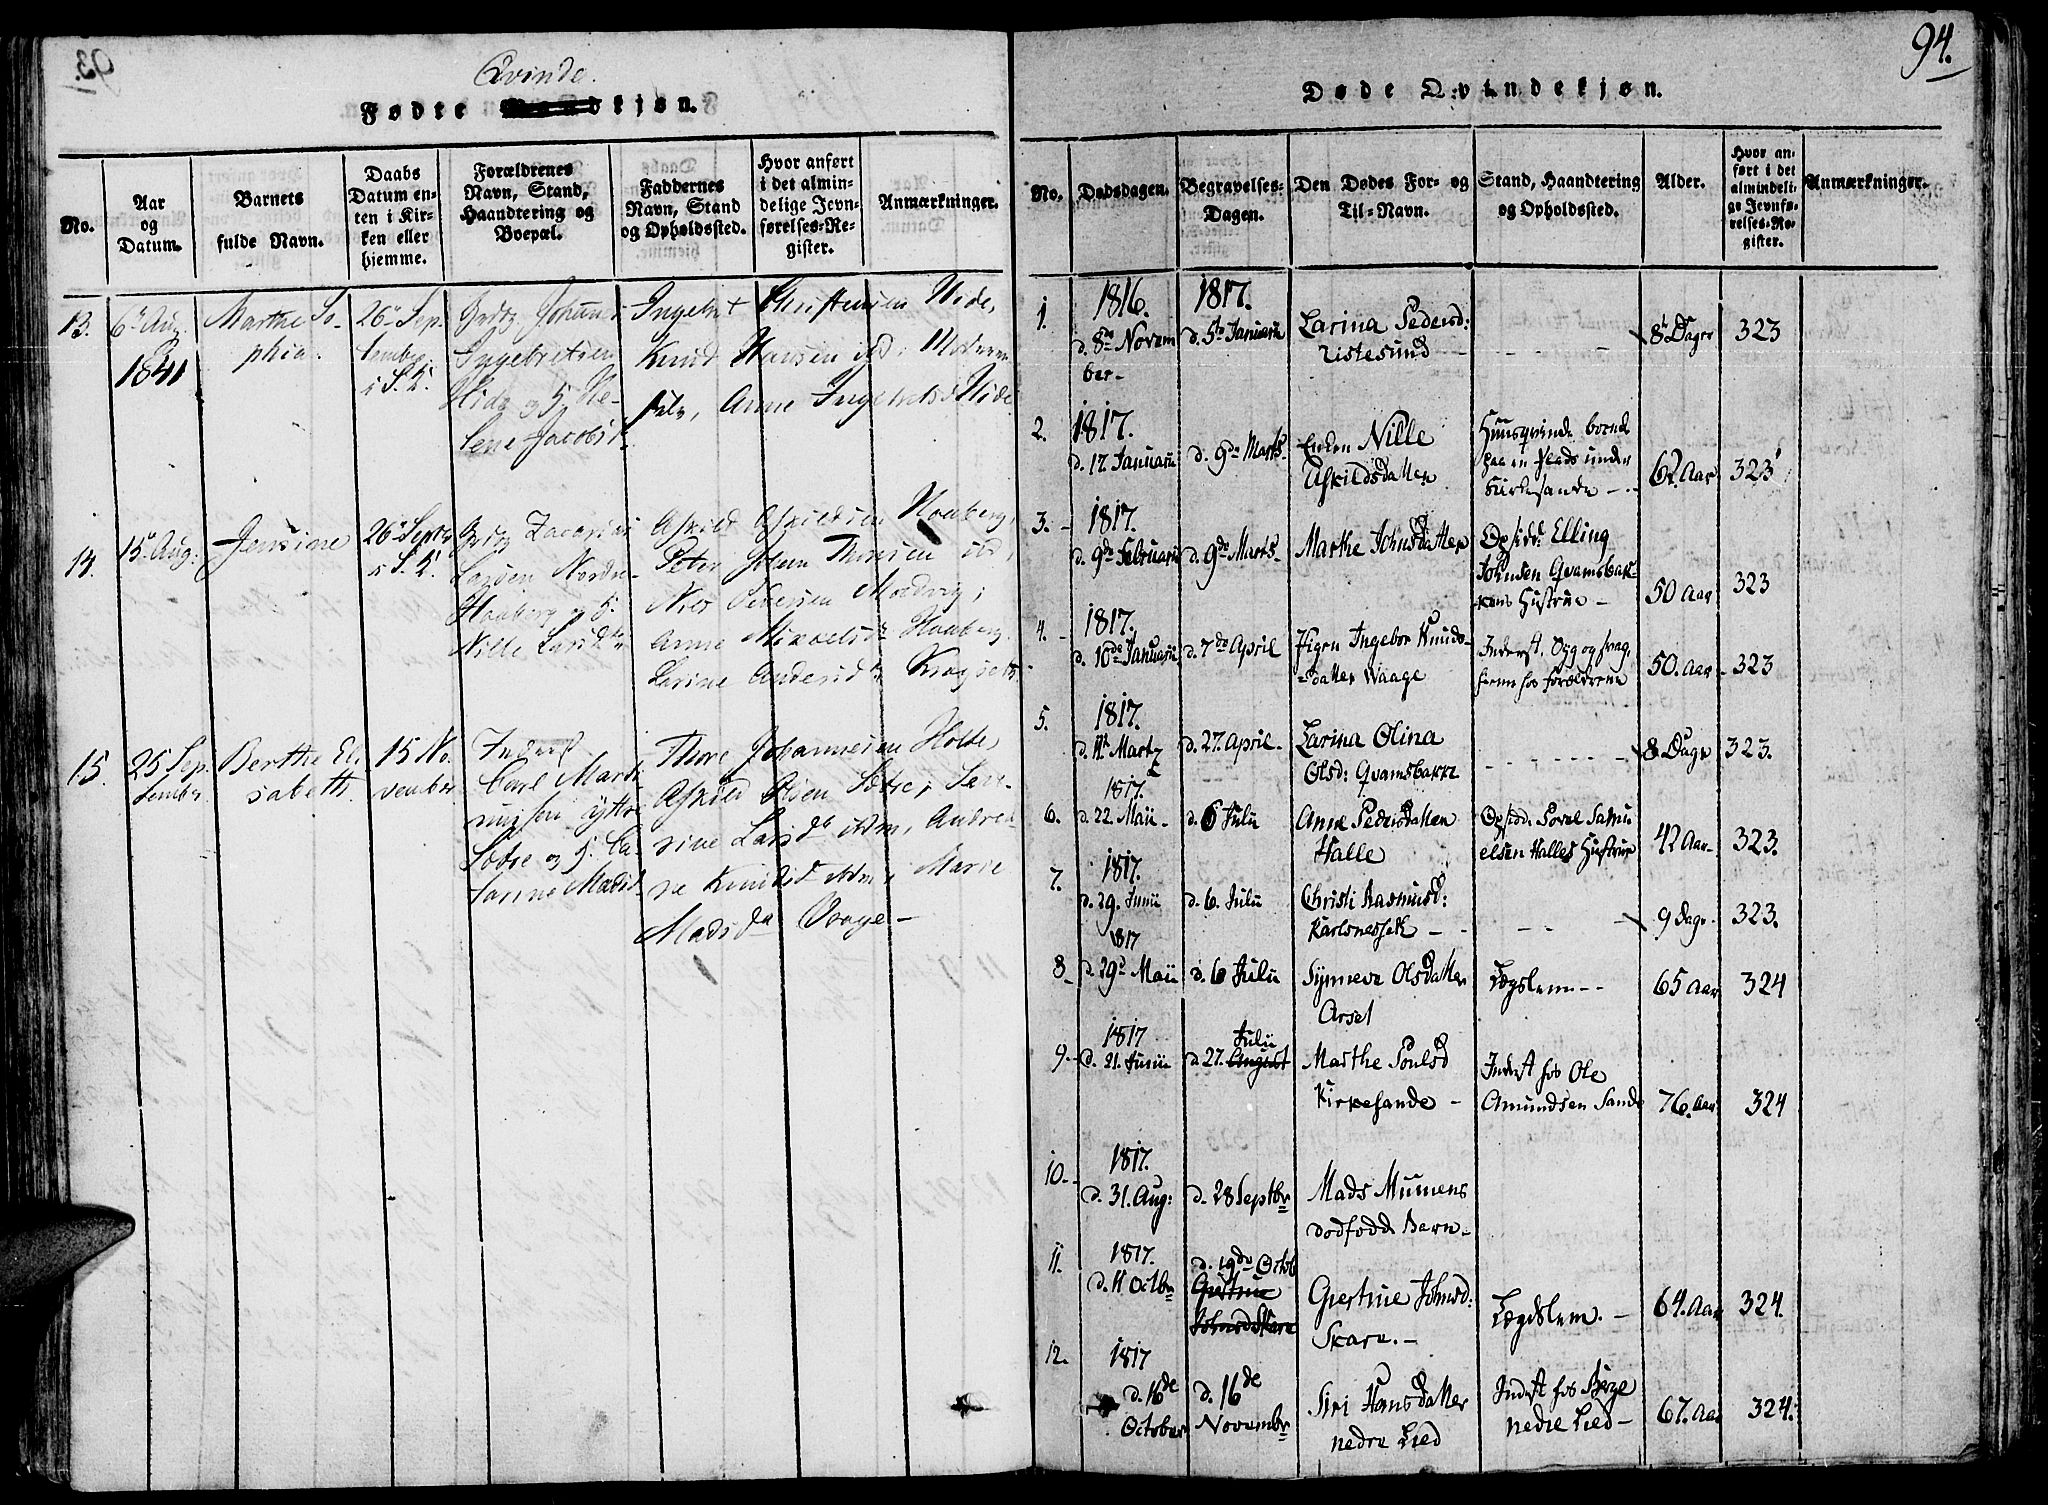 93.
Qvinde.
Fødte Mandkjøn.
No.
Aar
og
Datum.
Barnets
fulde Navn.
Daabs
Datum en-
ten i Kir-
ken eller
hjemme.
Forældrenes
Navn, Stand,
Haandtering og
Boepæl.
Faddernes
Navn, Stand
og Opholdssted.
Hvor anført
i det almin-
delige Jevn-
førelses-Re-
gister.
Anmærkninger.
13.
6te Aug.
1841
Marthe So-
phia.
26de Sep-
tember
i S. K.
Johannes
Ingebretsen
Hide og H. He-
lene Jacobsd.
Ingebret Christensen Hide,
Knud Hansen
Anne Ingebretsd Hide
14.
15de Aug.
Jensine
26de Septb.
i S. K.
Zacarias
Larsen Nordre
Haaberg og H.
Nille Larsdtr
Askild Askildsen Haaberg,
Peter Johan Thunsen ibd,
Nils Pedersen Mordvig,
Anne Mikkelsdtr Haaberg
Larine Andersdtr
15.
25 Sep-
tember.
Berthe El-
isabeth.
15 No-
vember
Inderst
Carl Marti-
nusen ytre
Sætre og H. Ca-
tarine Madsd
Thore Johannesen Holte,
Askild Olsen Sætre, Seve-
rine Larsdtr ibdm, Andrea-
ne Knudsd ibdm, Marie
Madsdtr Vaage-
94.
Døde Qvindekjøn.
No.
Dødsdagen.
Begravelses-
Dagen.
Den Dødes For- og
Til-Navn.
Stand, Haandtering
og Opholdssted.
Alder.
Hvor an-
ført i det
almindeli-
ge Jevnfø-
relses-Re-
gister.
Anmærkninger.
1.
1816.
d. 8de Novem
ber-
1817.
d. 5te Januarii
Larina Pedersd:
Ristesund
8t Dager
323
2.
1817.
d. 17. Januarii
d. 9de Marts.
Enken Nille
Askildsdatter
Huusqvinde boende
paa en Plads under
Kirkesande -
62 Aar
323
3.
1817.
d. 9de Februarii
d. 9de Marts
Marthe Johnsdatter
Opsidd: Elling
Johnsen Qvamsbak-
kens Hustrue -
50 Aar
323
4.
1817.
d. 10de Januarii
d. 7de April
Pigen Ingebor Knuds-
datter Waage
Inderst, Syg og svag
hiemme hos Forældrene
50. Aar
323
5.
1817.
d. 11te Martz
d. 27. April.
Larina Olina
Olsd: Qvamsbakke
8 Dage
323.
6.
1817.
d. 22. Maii
d. 6 Julii
Anne Pedersdatter
Halle
Opsidd. Sorel Samu
elsen Halles Hustrue
42 Aar
323.
7.
1817.
d. 29. Junii
d. 6. Julii
Christi Rasmusd:
Karlsneshek
9 Dage
323.
8
1817
d. 29de Maii
d. 6 Julii
Synneva Olsdatter
Arset
Lægslem
65 Aar
324
9.
1817
d. 21. Junii
Julii
d. 27. August
Marthe Poulsd
Kirkesande -
Inderst hos Ole
Amundsen Sande
76. Aar
324
10.
1817.
d. 31. Aug:
d. 28 Septbr
Mads Mumens
dødfødde Barn-
11.
1817.
d. 11 Octbr
d. 19de Octob
Giertrue
Johnsd Skare
Giertrue Johnsd:
Skare.-
Lægdslem.-
64. Aar
324.
12.
1817
d. 16de
October
d. 16de
Novembr
Siri Hansdatter
nedre Lied
Inderst hos Børge
nedre Lied-
67. Aar
324.